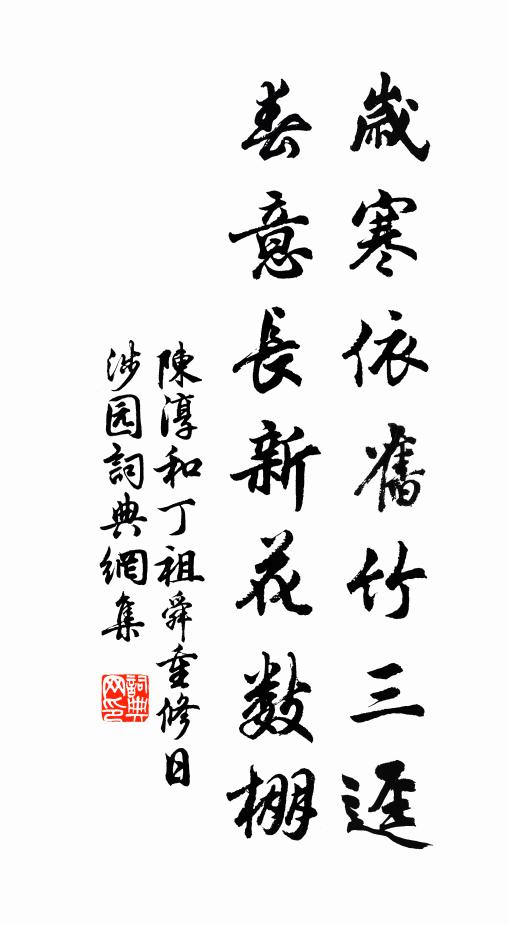 歲寒依舊竹三逕
春意長新花數棚
陳淳和丁祖舜重修日
涉园詞典網集
詞典网印